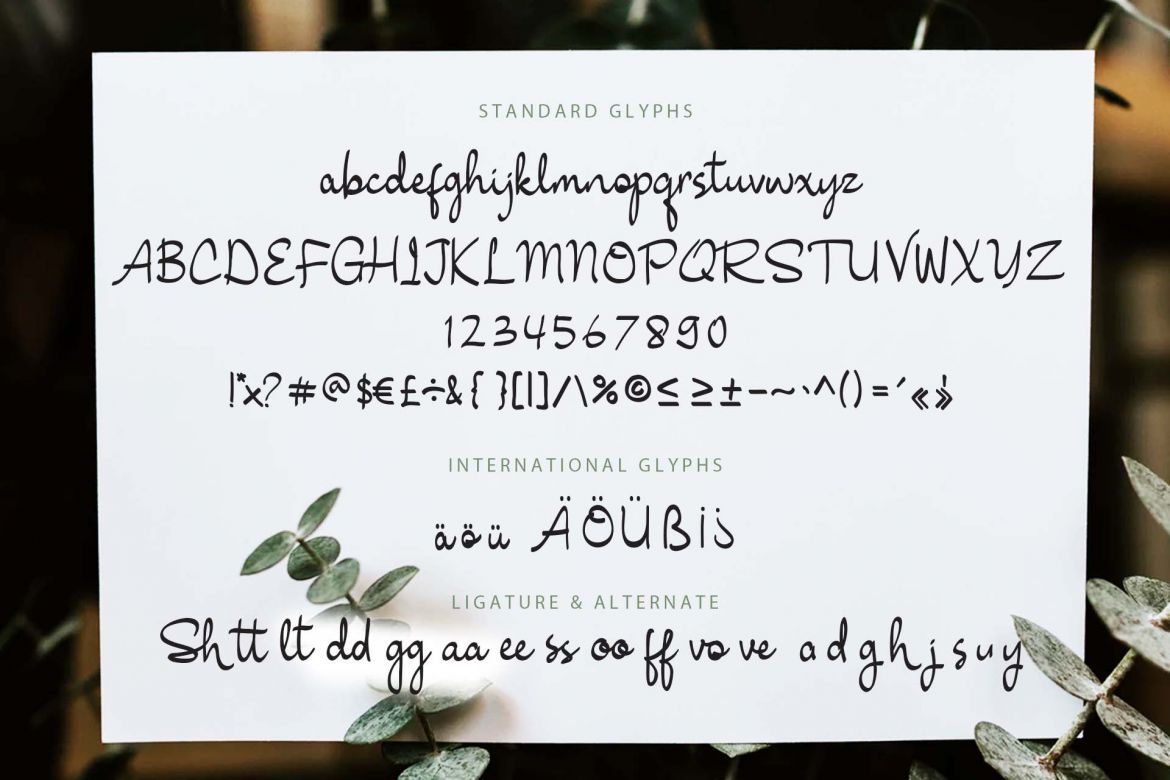 STANDARD GLYPHS
abcdefghijklmnopqrstuvwxyz
ABCDEFGHIJKLMNOPQRSTUVWXYZ
1234567890
!*x?#@$€£÷&{}[|]/\%©≤≥±-~`^()=´«»¦
INTERNATIONAL GLYPHS
äöü ÄÖÜßij
LIGATURE & ALTERNATE
Sh tt lt dd gg aa ee ss oo ff vo ve a d g h j s u y